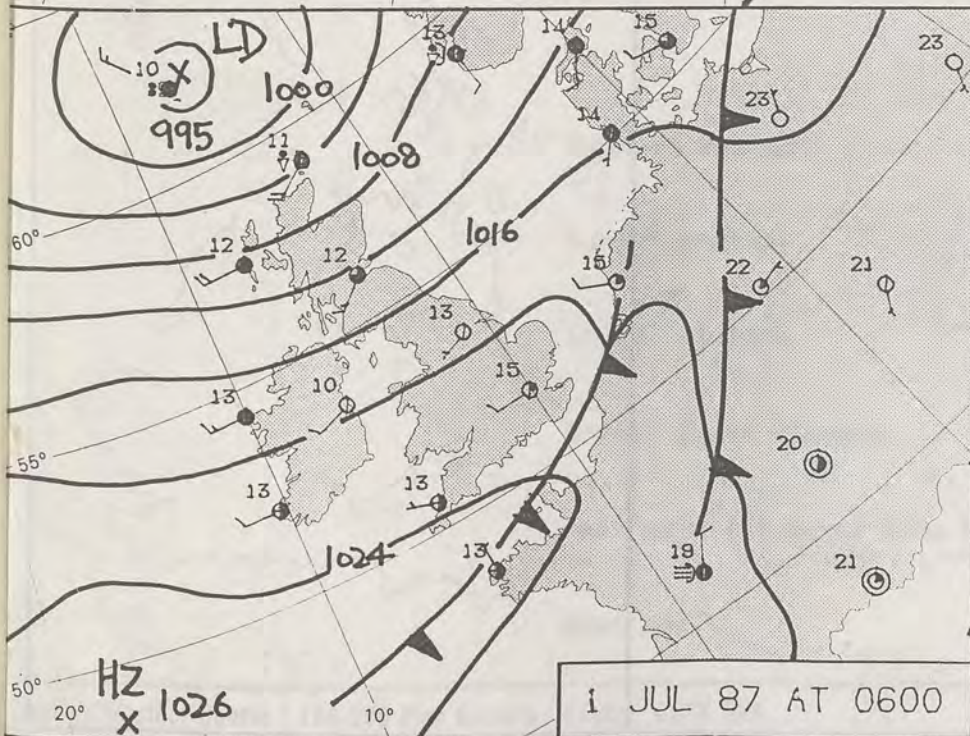 LD
10
995
1000
13
14
15
23
23
14
11
1008
60°
12
12
1016
15
22
21
13
13
10
15
55°
13
13
20
1024
13
19
21
50°
HZ
1026
20°
10°
1 JUL 87 AT 0600